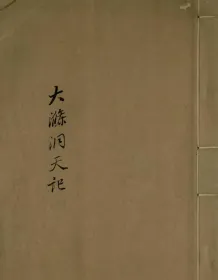 大滌洞天記